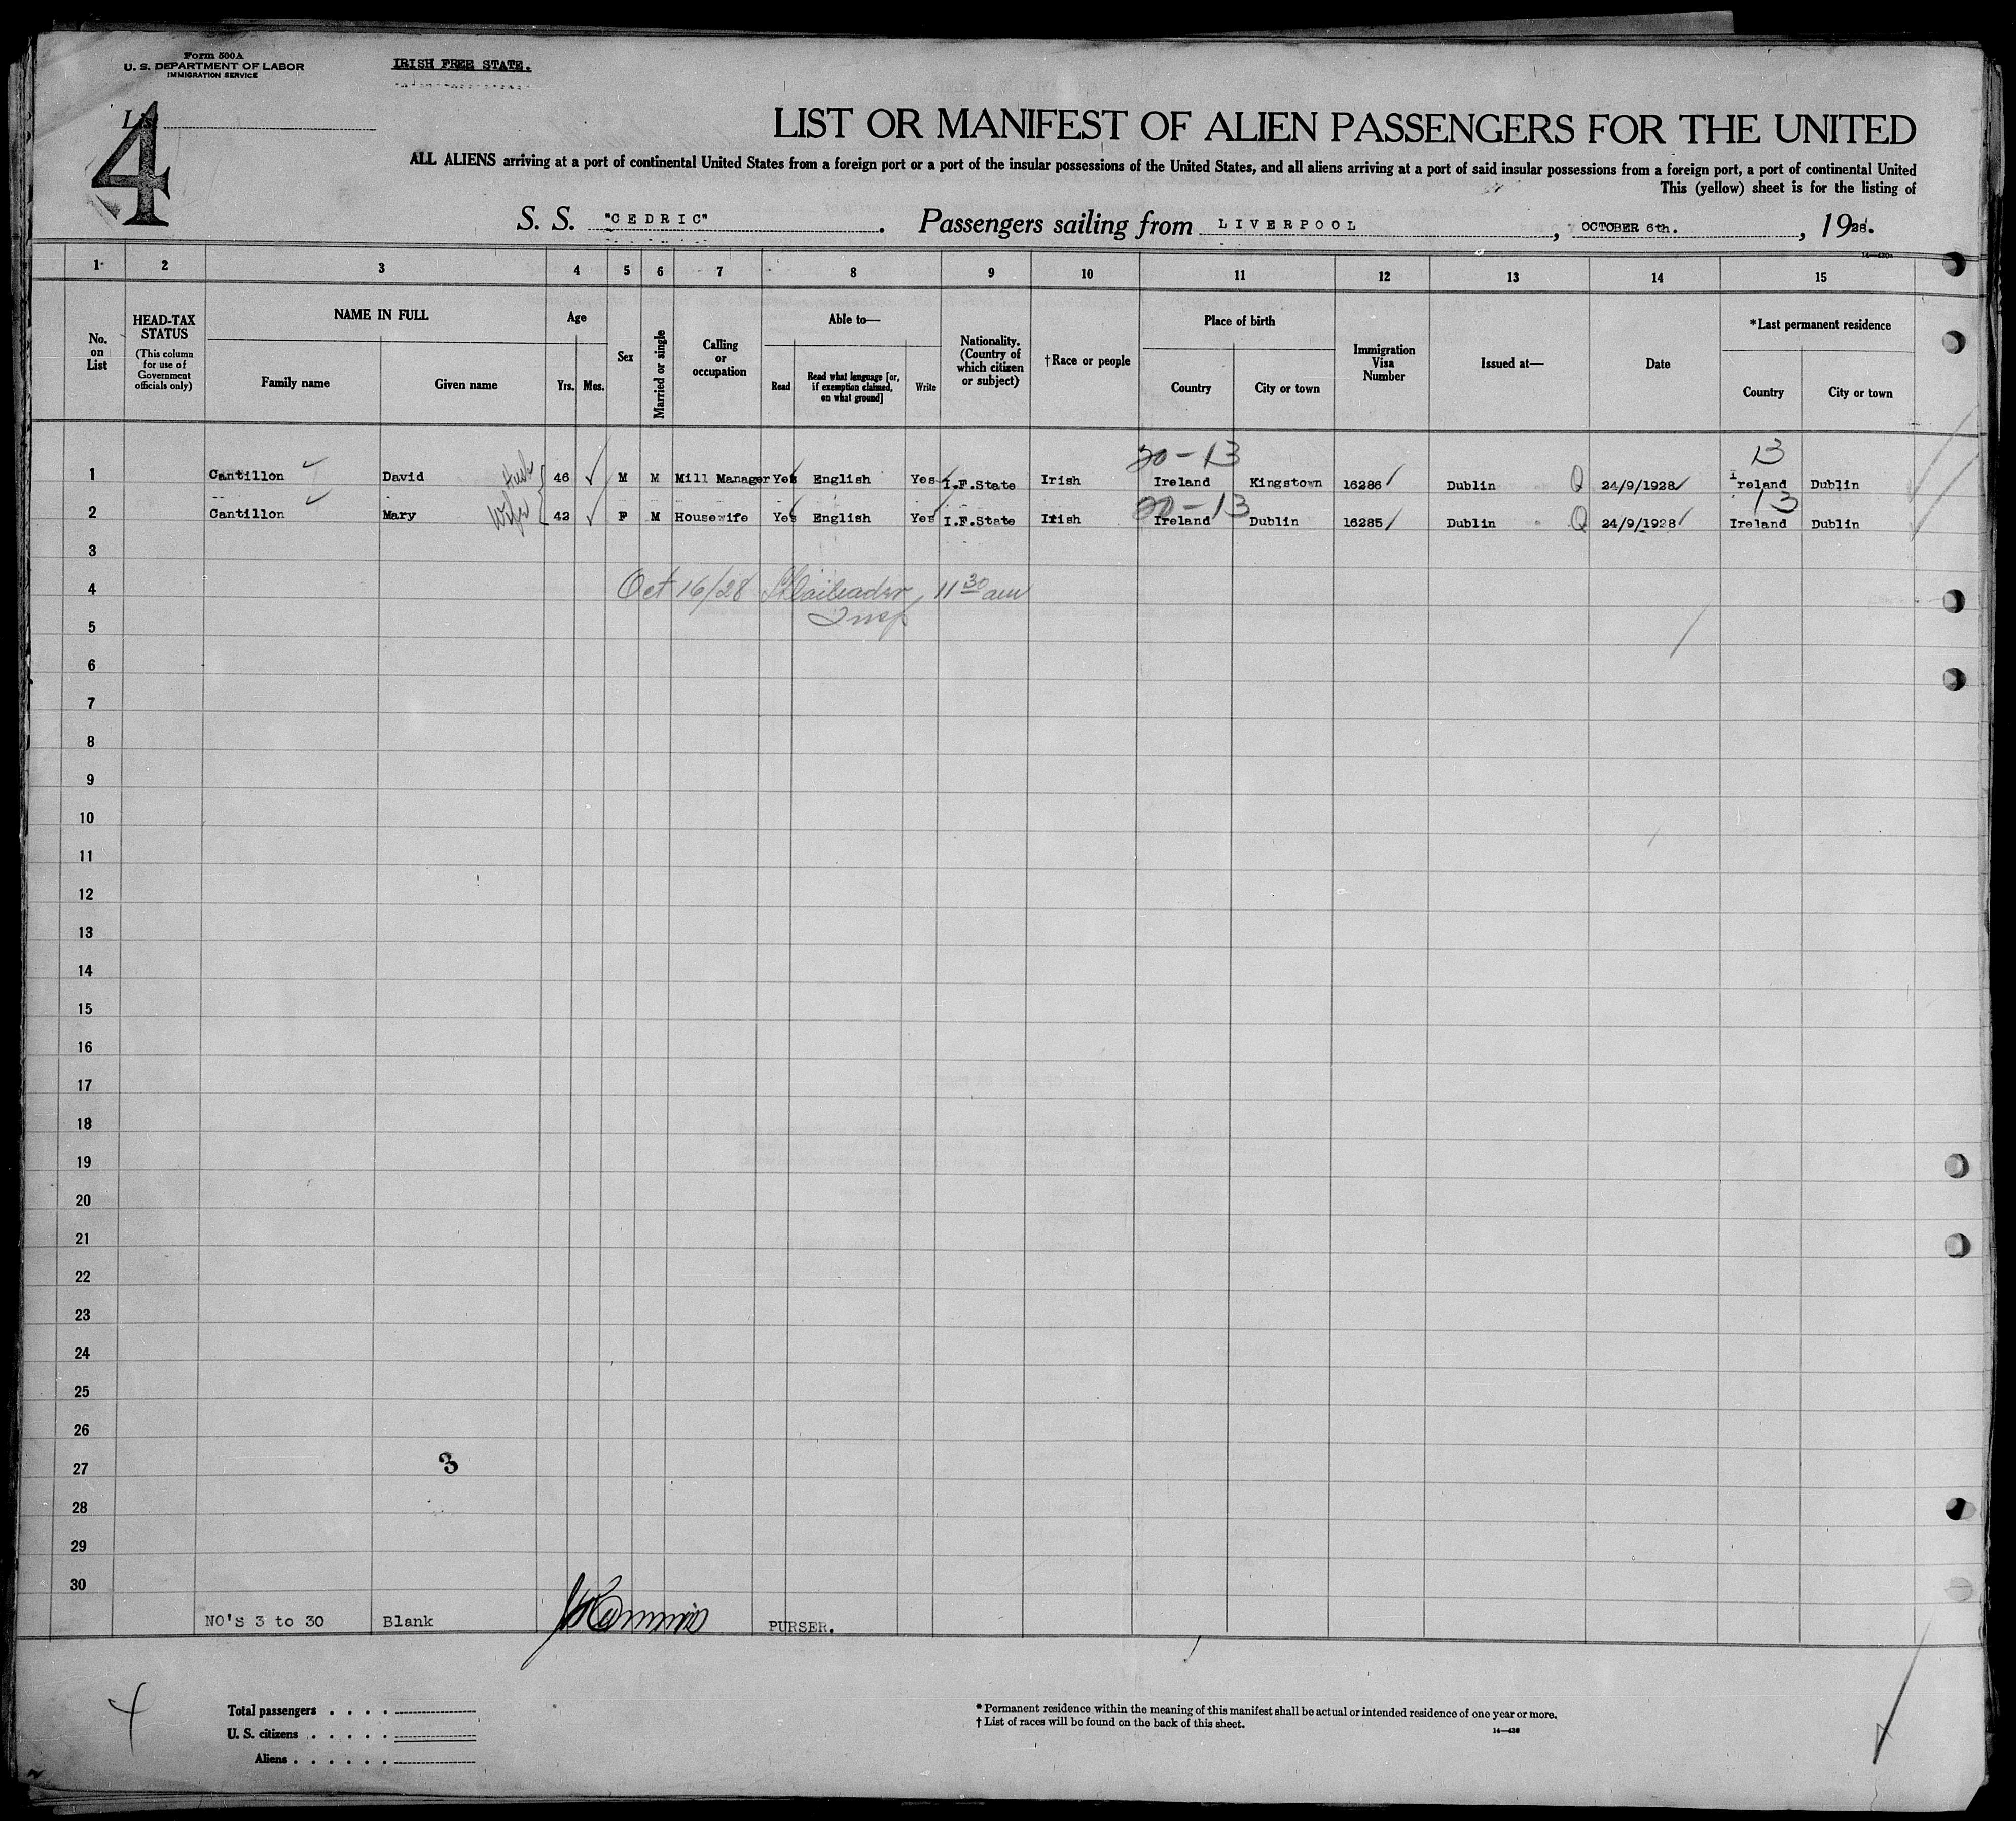 Form 500A
U. S. DEPARTMENT OF LABOR
IMMIGRATION SERVICE
IRISH FREE STATE.
List
4
LIST OR MANIFEST OF ALIEN PASSENGERS FOR THE UNITED
ALL ALIENS arriving at a port of continental United States from a foreign port or a port of the insular possessions of the United States, and all aliens arriving at a port of said insular possessions from a foreign port, a port of continental United
This (yellow) sheet is for the listing of
S. S. "CEDRIC". Passengers sailing from LIVERPOOL, OCTOBER 6th., 1928.
1 2 3 4 5 6 7 8 9 10 11 12 13 14 15
No. on List
HEAD-TAX STATUS (This column for use of Government officials only)
NAME IN FULL
Family name Given name
Age
Yrs. Mos.
Sex
Married or single
Calling or occupation
Able to—
Read Read what language [or, if exemption claimed, on what ground] Write
Nationality. (Country of which citizen or subject)
†Race or people
Place of birth
Country City or town
Immigration Visa Number
Issued at—
Date
*Last permanent residence
Country City or town
20-13 13
1 Cantillon David Husb 46 M M Mill Manager Yes English Yes I.F.State Irish Ireland Kingstown 16286 Dublin Q 24/9/1928 Ireland Dublin
20-13 13
2 Cantillon Mary Wife 42 F M Housewife Yes English Yes I.F.State Irish Ireland Dublin 16285 Dublin Q 24/9/1928 Ireland Dublin
3
4 Oct 16/28 11 30 am
Insp
5
6
7
8
9
10
11
12
13
14
15
16
17
18
19
20
21
22
23
24
25
26
27 3
28
29
30
NO'S 3 to 30 Blank PURSER.
4
Total passengers . . . .
U. S. citizens . . . . .
Aliens . . . . . .
* Permanent residence within the meaning of this manifest shall be actual or intended residence of one year or more.
† List of races will be found on the back of this sheet.
14—430